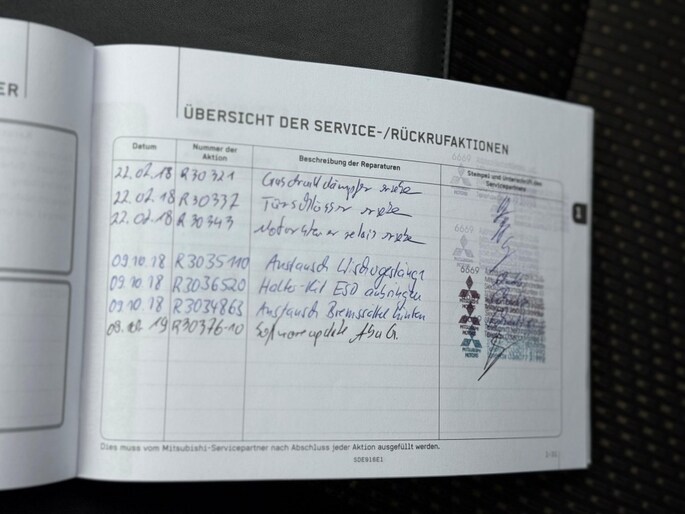 ER
ÜBERSICHT DER SERVICE-/RÜCKRUFAKTIONEN
Datum Nummer der Aktion Beschreibung der Reparaturen Stempel und Unterschrift des Servicepartners
22.02.18 R30321 Gasdruckdämpfer ersetzt
22.02.18 R30337 Türschlösser ersetzt
22.02.18 R30343 Motorsteuerrelais ersetzt
09.10.18 R3035110 Austausch Wischergestänge
09.10.18 R3036520 Halte-Kit ESD anbringen
09.10.18 R3034863 Austausch Bremssättel hinten
19 R30376-10 Softwareupdate
6669
6669
6669
MITSUBISHI MOTORS
Dies muss vom Mitsubishi-Servicepartner nach Abschluss jeder Aktion ausgefüllt werden.
SDE916E1